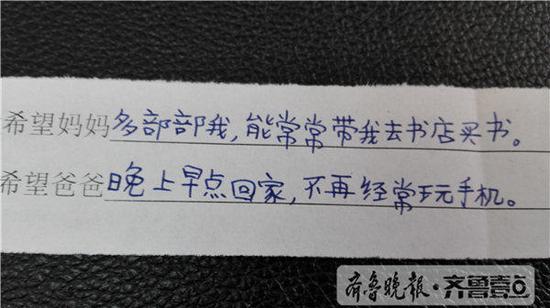 希望妈妈多部部我,能常常带我去书店买书。
希望爸爸晚上早点回家,不再经常玩手机。
齐鲁晚报·齐鲁壹点